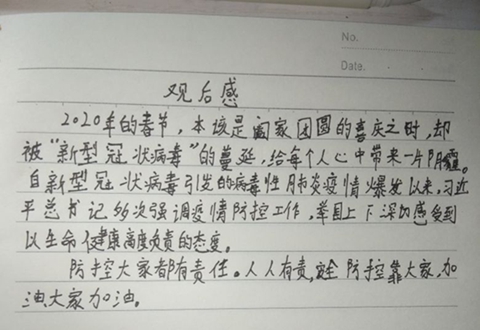 No.
Date.
观后感
2020年的春节，本该是阖家团圆的喜庆之时，却
被“新型冠状病毒”的蔓延，给每个人心中带来一片阴霾。
自新型冠状病毒引发的病毒性肺炎疫情爆发以来，习近
平总书记多次强调疫情防控工作，举国上下深切感受到
以生命健康高度负责的态度。
防控大家都有责任。人人有责，安全防控靠大家，加
油大家加油。